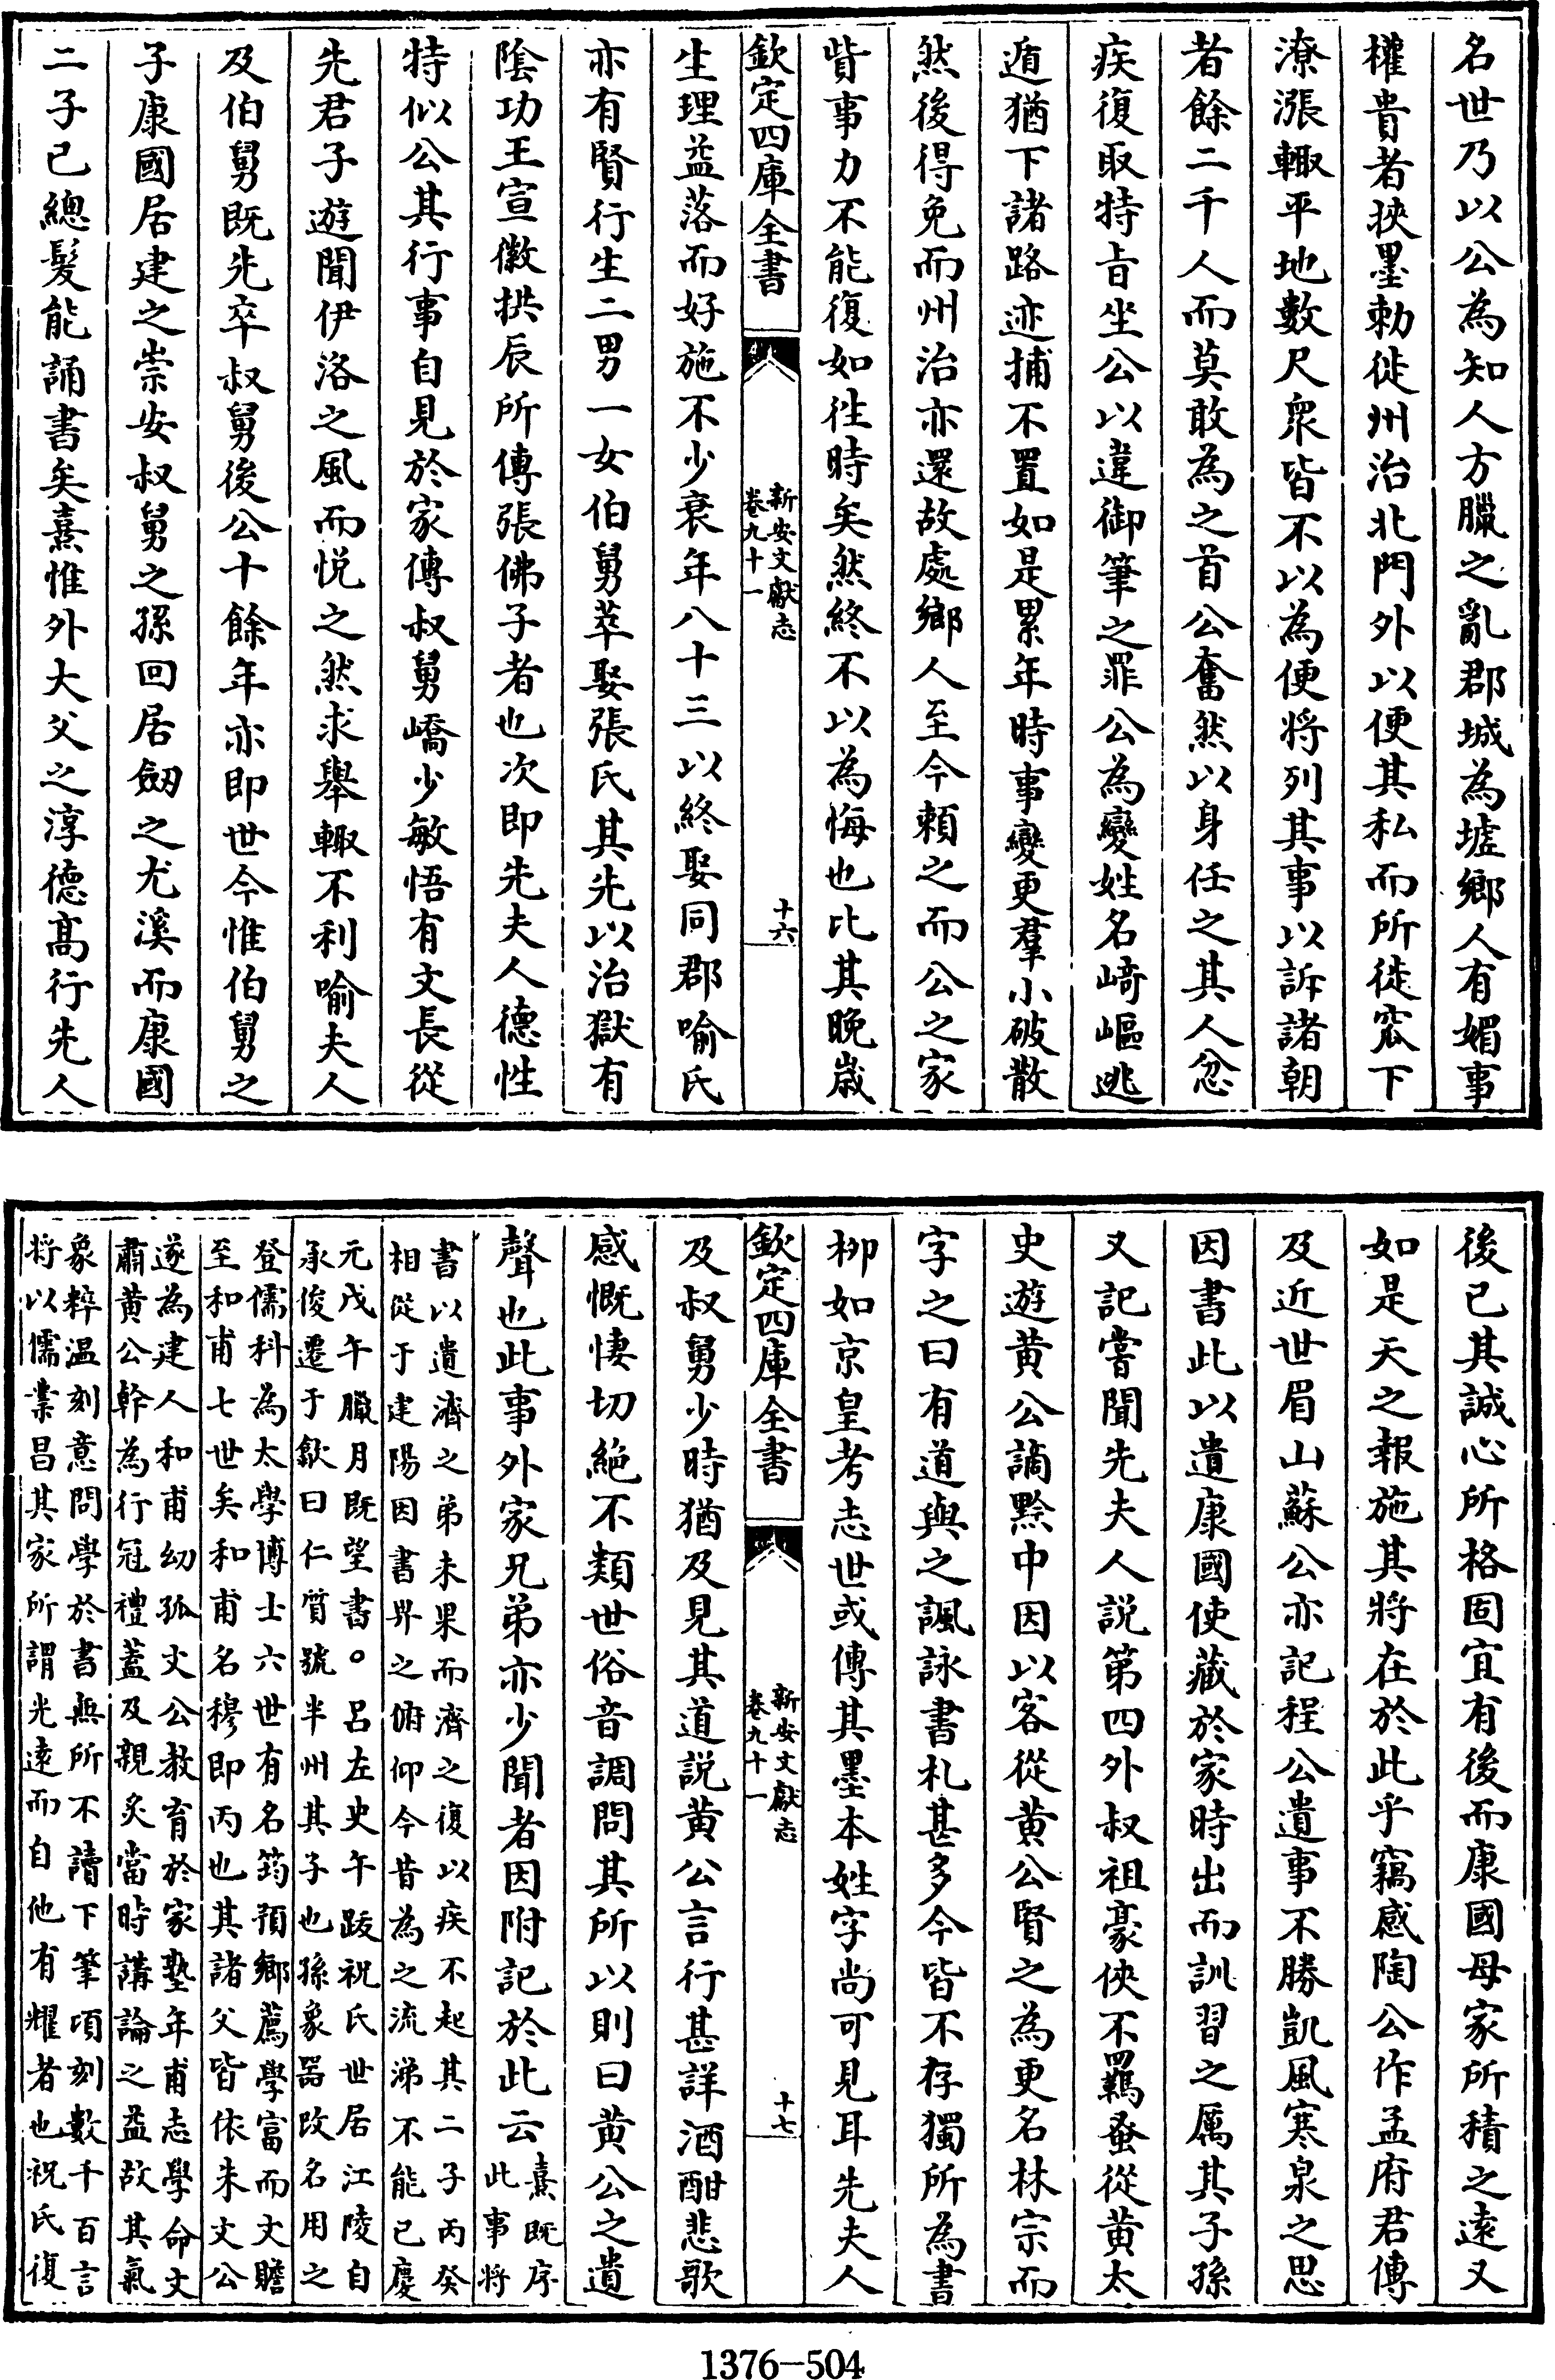 名世乃以公為知人方臘之亂郡城為墟鄉人有媚事
權貴者挾墨勅徙州治北門外以便其私而所徙窊下
潦漲輙平地數尺衆皆不以為便將列其事以訴諸朝
者餘二千人而莫敢為之首公奮然以身任之其人忿
疾復取特旨坐公以違御筆之罪公為變姓名崎嶇逃
遁猶下諸路迹捕不置如是累年時事變更羣小破散
然後得免而州治亦還故處鄉人至今頼之而公之家
貲事力不能復如徃時矣然終不以為悔也比其晚歲
欽定四庫全書
新安文獻志
卷九十一
十六
生理益落而好施不少衰年八十三以終娶同郡喻氏
亦有賢行生二男一女伯舅莘娶張氏其先以治獄有
隂功王宣徽拱辰所傳張佛子者也次即先夫人德性
特似公其行事自見於家傳叔舅嶠少敏悟有文長從
先君子遊聞伊洛之風而悦之然求舉輙不利喻夫人
及伯舅既先卒叔舅後公十餘年亦即世今惟伯舅之
子康國居建之崇安叔舅之孫回居劔之尤溪而康國
二子已總髮能誦書矣熹惟外大父之淳德髙行先人
後已其誠心所格固宜有後而康國母家所積之逺又
如是天之報施其將在於此乎竊感陶公作孟府君傳
及近世眉山蘇公亦記程公遺事不勝凱風寒泉之思
因書此以遺康國使藏於家時出而訓習之厲其子孫
又記嘗聞先夫人説第四外叔祖豪俠不羈蚤從黄太
史遊黄公謫黔中因以客從黄公賢之為更名林宗而
字之曰有道與之諷詠書札甚多今皆不存獨所為書
栁如京皇考志世或傳其墨本姓字尚可見耳先夫人
欽定四庫全書
新安文獻志
卷九十一
十七
及叔舅少時猶及見其道説黄公言行甚詳酒酣悲歌
感慨悽切絶不類世俗音調問其所以則曰黄公之遺
聲也此事外家兄弟亦少聞者因附記於此云熹既序
此事將
書以遺濟之弟未果而濟之復以疾不起其二子丙癸
相從于建陽因書畀之俯仰今昔為之流涕不能已慶
元戊午臘月既望書。吕左史午跋祝氏世居江陵自
承俊遷于歙曰仁質號半州其子也孫象器改名用之
登儒科為太學博士六世有名筠預鄉薦學富而文贍
至和甫七世矣和甫名穆即丙也其諸父皆依朱文公
遂為建人和甫幼孤文公教育於家塾年甫志學命文
肅黄公幹為行冠禮蓋及親炙當時講論之益故其氣
象粹温刻意問學於書無所不讀下筆頃刻數千百言
将以儒業昌其家所謂光逺而自他有耀者也祝氏復
1376-504